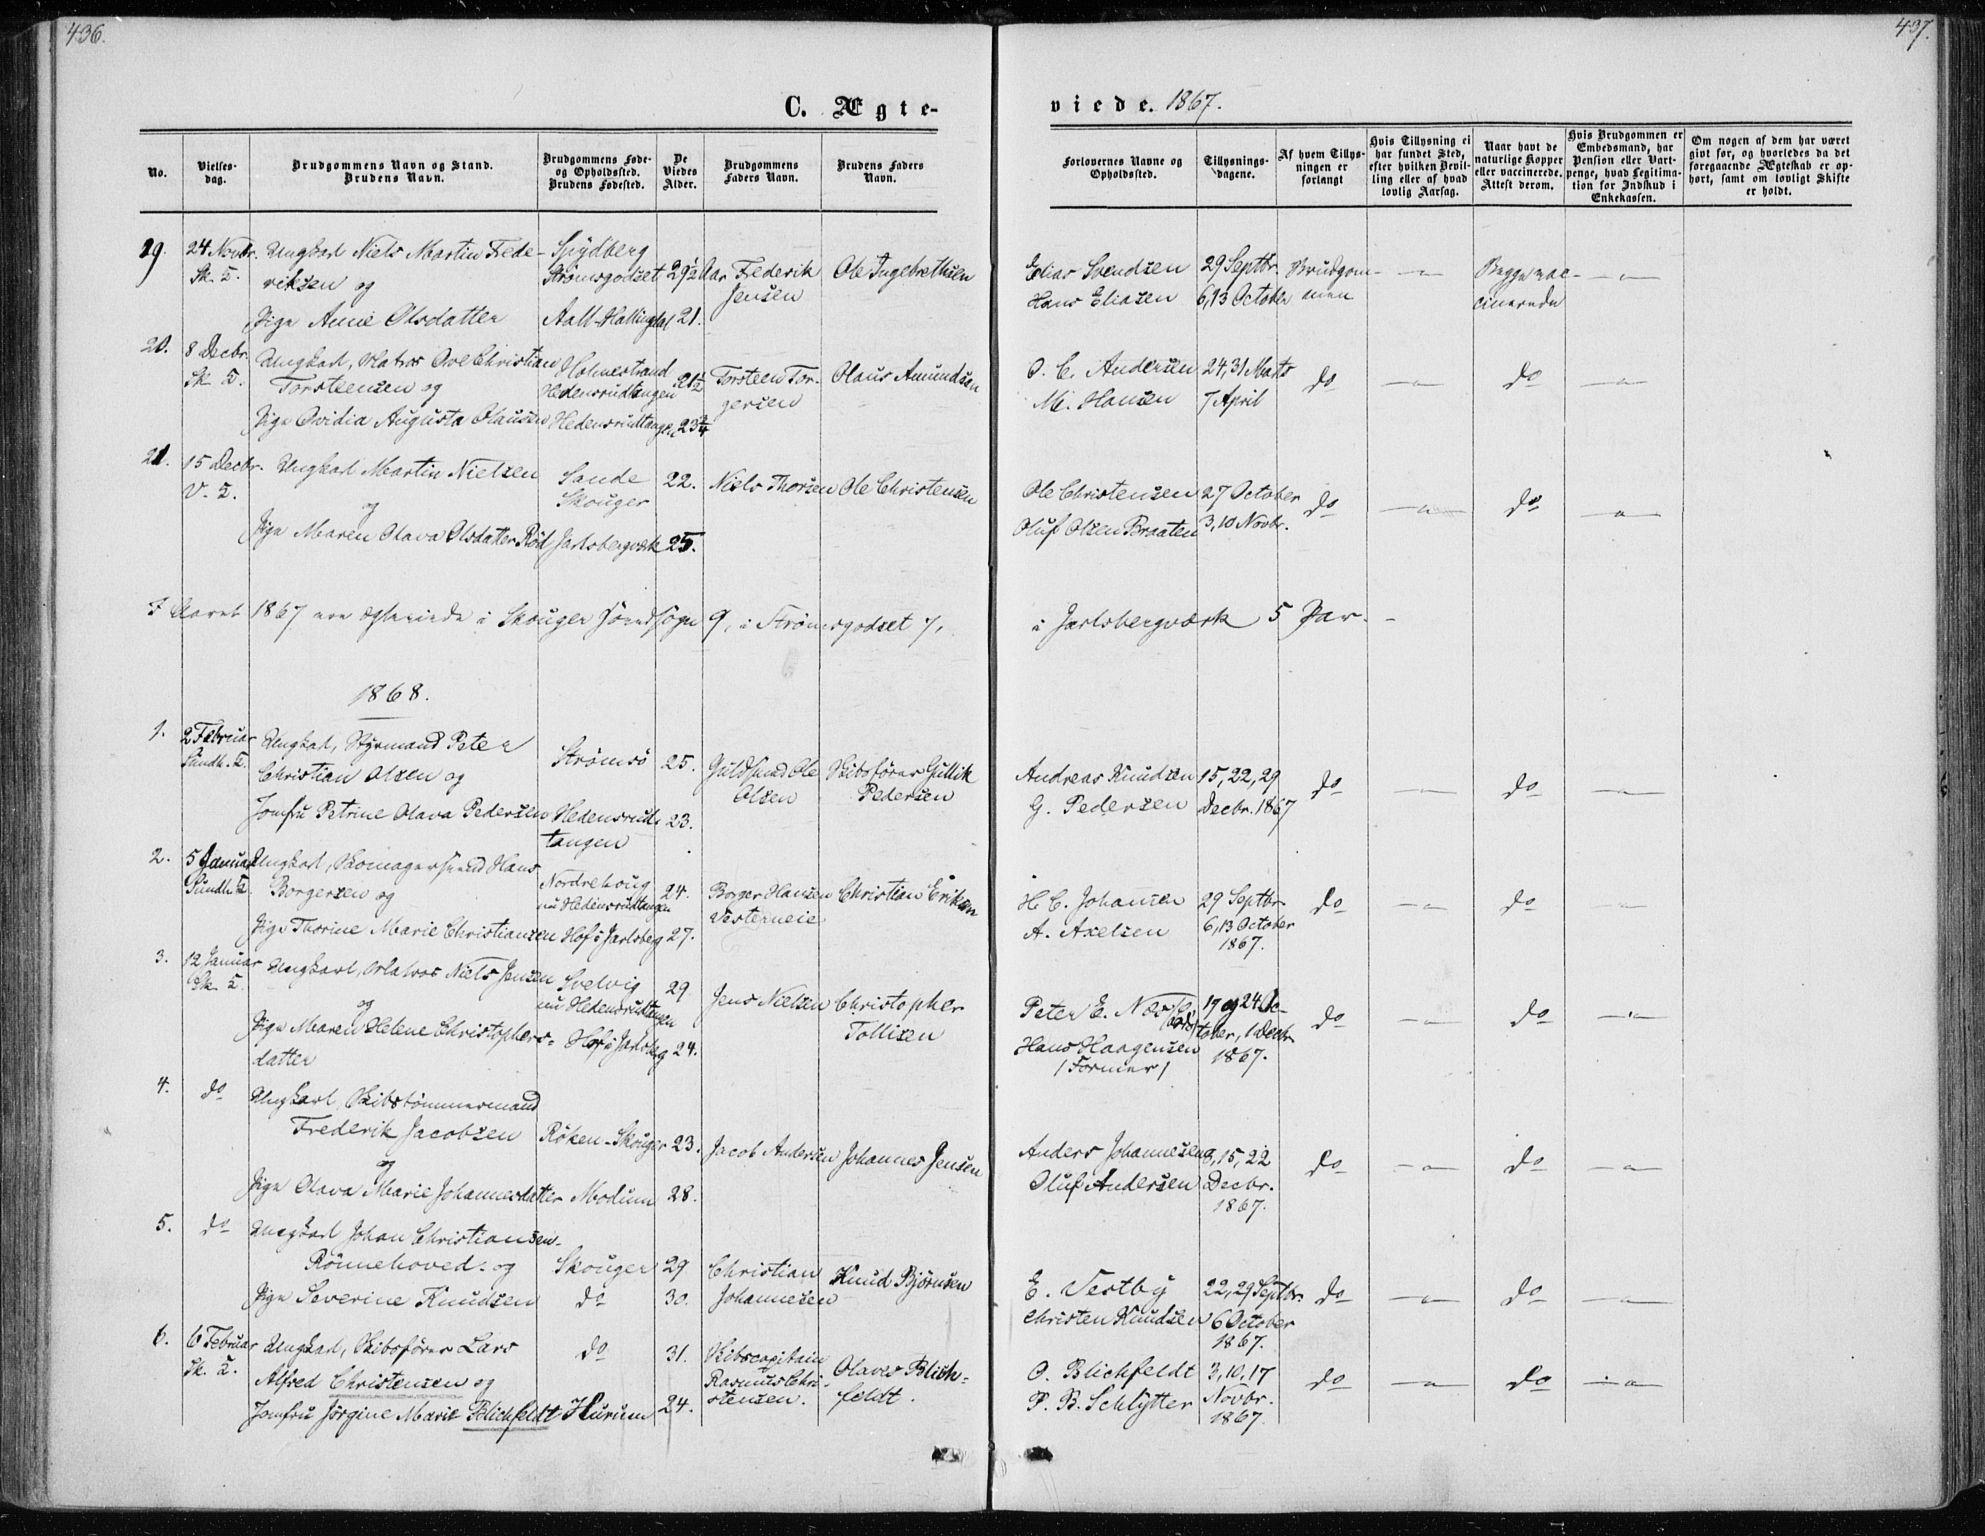 436.
437.
C. Ægte-
viede. 1867.
No.
Vielses-
dag.
Brudgommens Navn og Stand.
Brudens Navn.
Brudgommens Føde-
og Opholdssted.
Brudens Fødested.
De
Viedes
Alder.
Brudgommens
Faders Navn.
Brudens Faders
Navn.
Forlovernes Navne og
Opholdssted.
Tillysnings-
dagene.
Af hvem Tillys-
ningen er
forlangt
Hvis Tillysning ei
har fundet Sted,
efter hvilken Bevil-
ling eller af hvad
lovlig Aarsag.
Naar havt de
naturlige Kopper
eller vaccinerede.
Attest derom.
Hvis Brudgommen er
Embedsmand, har
Pension eller Vart-
penge, hvad Legitima-
tion for Indskud i
Enkekassen.
Om nogen af dem har været
givt før, og hvorledes da det
foregaaende Ægteskab er op-
hørt, samt om lovligt Skifte
er holdt.
19. 24 Novbr. Ungkarl Niels Martin Frede- Spydberg 29½ Aar Federik Ole Ingebrethsen Elias Svendsen 29 Septbr. Brudgom- — Begge vac- —
Sk. K. riksen og Strømsgodset Jensen Hans Eliasen 6,13 October men cinerede
Pige Anne Olsdatter Aall-Hallingdal 21.
20. 8 Decbr. Ungkarl, Matros Ove Christian Holmestrand 21½ Torsteen Tor- Olaus Amundsen O. C. Andersen 24,31 Marts do — do —
Sk. K. Torsteensen og Hedensrudtangen gersen M. Hansen 7 April
Pige Ovidia Augusta Olausen Hedensrudtangen 23¾
21. 15 Decbr. Ungkarl Martin Nielsen Sande 22. Niels Thorsen Ole Christensen Ole Christensen 27 October do — do —
V. K. og Skouger Oluf Olsen Braaten 3,10 Novbr.
Pige Maren Olava Olsdatter Rød Jarlsbergværk 25.
I Aaret 1867 ere ægteviede i Skouger Hovedsogn 9, i Strømsgodset 7, i Jarlsbergværk 5 Par. -
1868.
1. 2 Februar Ungkarl, Styrmand Peter Strømsø 25. Guldsmed Ole Skibsfører Gullik Andreas Knudsen 15, 22, 29 do — do —
Christian Olsen og Olsen Pedersen G. Pedersen Decbr. 1867
Jomfru Petrine Olava Pedersen Hedensrud- 23.
tangen
2. 5 Januar Ungkarl, Skomagersvend Hans Nordrehoug 24. Borger Hansen Christian Eriksen H. C. Johansen 29 Septbr. do — do —
Borgersen og nu Hedensrudtangen Vesterneie A. Axelsen 6,13 October
Pige Thorine Marie Christiansen Hof i Jarlsberg 27. 1867.
3. 12 Januar Ungkarl, Matros Niels Jensen Svelvig 29. Jens Nielsen Christopher Peter E. 17 og 24 Oc- do — do —
Sk. K. og nu Hedensrudtangen Tollisen tober, 1 Decbr.
Pige Maren Helene Christophers- Hof i Jarlsberg 24. Hans Haagensen 1867.
datter /Forner/
4. do Ungkarl, Skibstømmermand
Frederik Jacobsen Røken - Skouger 23. Jacob Andersen Johannes Jensen Anders Johannesen 8, 15, 22 do — do —
og Oluf Andersen Decbr.
Pige Olava Marie Johannesdatter Modum 28. 1867.
5. do Ungkarl Johan Christiansen
Rønnehoved. og Skouger 29 Christian Knud Bjørnsen E. Vestby 22, 29 Septbr. do — do —
Pige Severine Knudsen do 30. Johannesen Christen Knudsen 6 October
1867.
6. 6 Februar Ungkarl, Skibsfører Lars do 31. Skibscapitain Olaves Blich- O. Blichfeldt 3, 10, 17 do — do —
Sk. K. Alfred Christensen og Rasmus Chri- feldt. P. B. Schlytter Novbr.
Jomfru Jørgine Marie Blichfeldt Hurum 24. stensen. 1867.